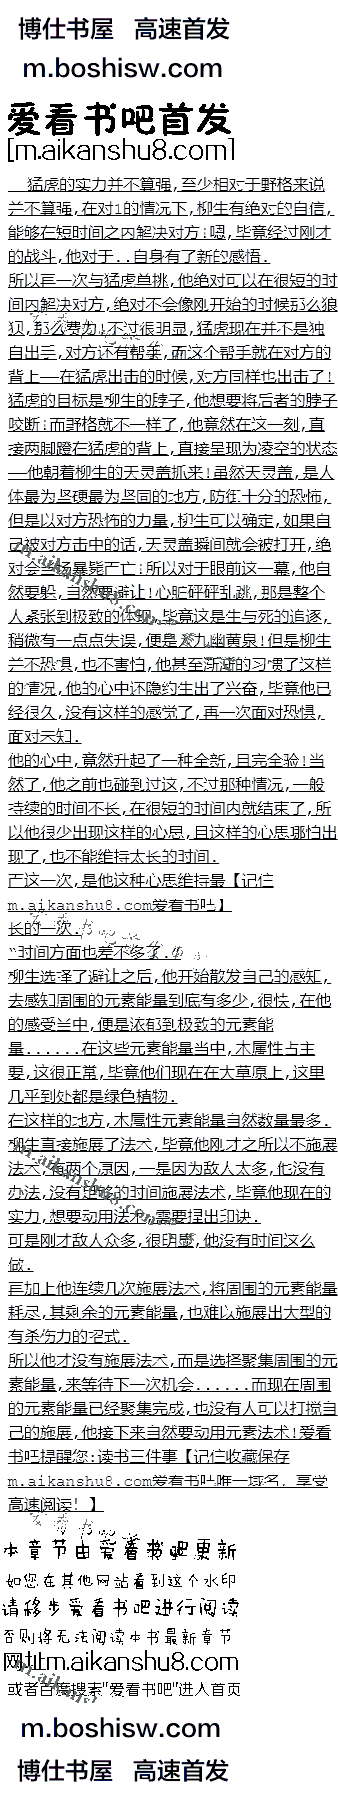 博仕书屋 高速首发
m.boshisw.com
爱看书吧首发
[m.aikanshu8.com]
猛虎的实力并不算强,至少相对于野格来说
并不算强,在对1的情况下,柳生有绝对的自信,
能够在短时间之内解决对方;嗯,毕竟经过刚才
的战斗,他对于..自身有了新的感悟.
所以再一次与猛虎单挑,他绝对可以在很短的时
间内解决对方,绝对不会像刚开始的时候那么狼
狈,那么费力!不过很明显,猛虎现在并不是独
自出手,对方还有帮手,而这个帮手就在对方的
背上——在猛虎出击的时候,对方同样也出击了!
猛虎的目标是柳生的脖子,他想要将后者的脖子
咬断;而野格就不一样了,他竟然在这一刻,直
接两脚蹬在猛虎的背上,直接呈现为凌空的状态
——他朝着柳生的天灵盖抓来!虽然天灵盖,是人
体最为坚硬最为坚固的地方,防御十分的恐怖,
但是以对方恐怖的力量,柳生可以确定,如果自
己被对方击中的话,天灵盖瞬间就会被打开,绝
对会当场暴毙而亡;所以对于眼前这一幕,他自
然要躲,当然要避让!心脏砰砰乱跳,那是整个
人紧张到极致的体现,毕竟这是生与死的追逐,
稍微有一点点失误,便是入九幽黄泉!但是柳生
并不恐惧,也不害怕,他甚至渐渐的习惯了这样
的情况,他的心中还隐约生出了兴奋,毕竟他已
经很久,没有这样的感觉了,再一次面对恐惧,
面对未知.
他的心中,竟然升起了一种全新,且完全验!当
然了,他之前也碰到过这,不过那种情况,一般
持续的时间不长,在很短的时间内就结束了,所
以他很少出现这样的心思,且这样的心思哪怕出
现了,也不能维持太长的时间.
而这一次,是他这种心思维持最【记住
m.aikanshu8.com爱看书吧】
长的一次.
“时间方面也差不多了.”
柳生选择了避让之后,他开始散发自己的感知,
去感知周围的元素能量到底有多少,很快,在他
的感受当中,便是浓郁到极致的元素能
量......在这些元素能量当中,木属性占主
要,这很正常,毕竟他们现在在大草原上,这里
几乎到处都是绿色植物.
在这样的地方,木属性元素能量自然数量最多.
柳生直接施展了法术,毕竟他刚才之所以不施展
法术,有两个原因,一是因为敌人太多,他没有
办法,没有足够的时间施展法术,毕竟他现在的
实力,想要动用法术,需要捏出印诀.
可是刚才敌人众多,很明显,他没有时间这么
做.
再加上他连续几次施展法术,将周围的元素能量
耗尽,其剩余的元素能量,也难以施展出大型的
有杀伤力的招式.
所以他才没有施展法术,而是选择聚集周围的元
素能量,来等待下一次机会......而现在周围
的元素能量已经聚集完成,也没有人可以打搅自
己的施展,他接下来自然要动用元素法术!爱看
书吧提醒您:读书三件事【记住收藏保存
m.aikanshu8.com爱看书吧唯一域名, 享受
高速阅读! 】
本章节由爱看书吧更新
如您在其他网站看到这个水印
请移步爱看书吧进行阅读
否则将无法阅读本书最新章节
网址m.aikanshu8.com
或者百度搜索"爱看书吧"进入首页
m.boshisw.com
博仕书屋 高速首发